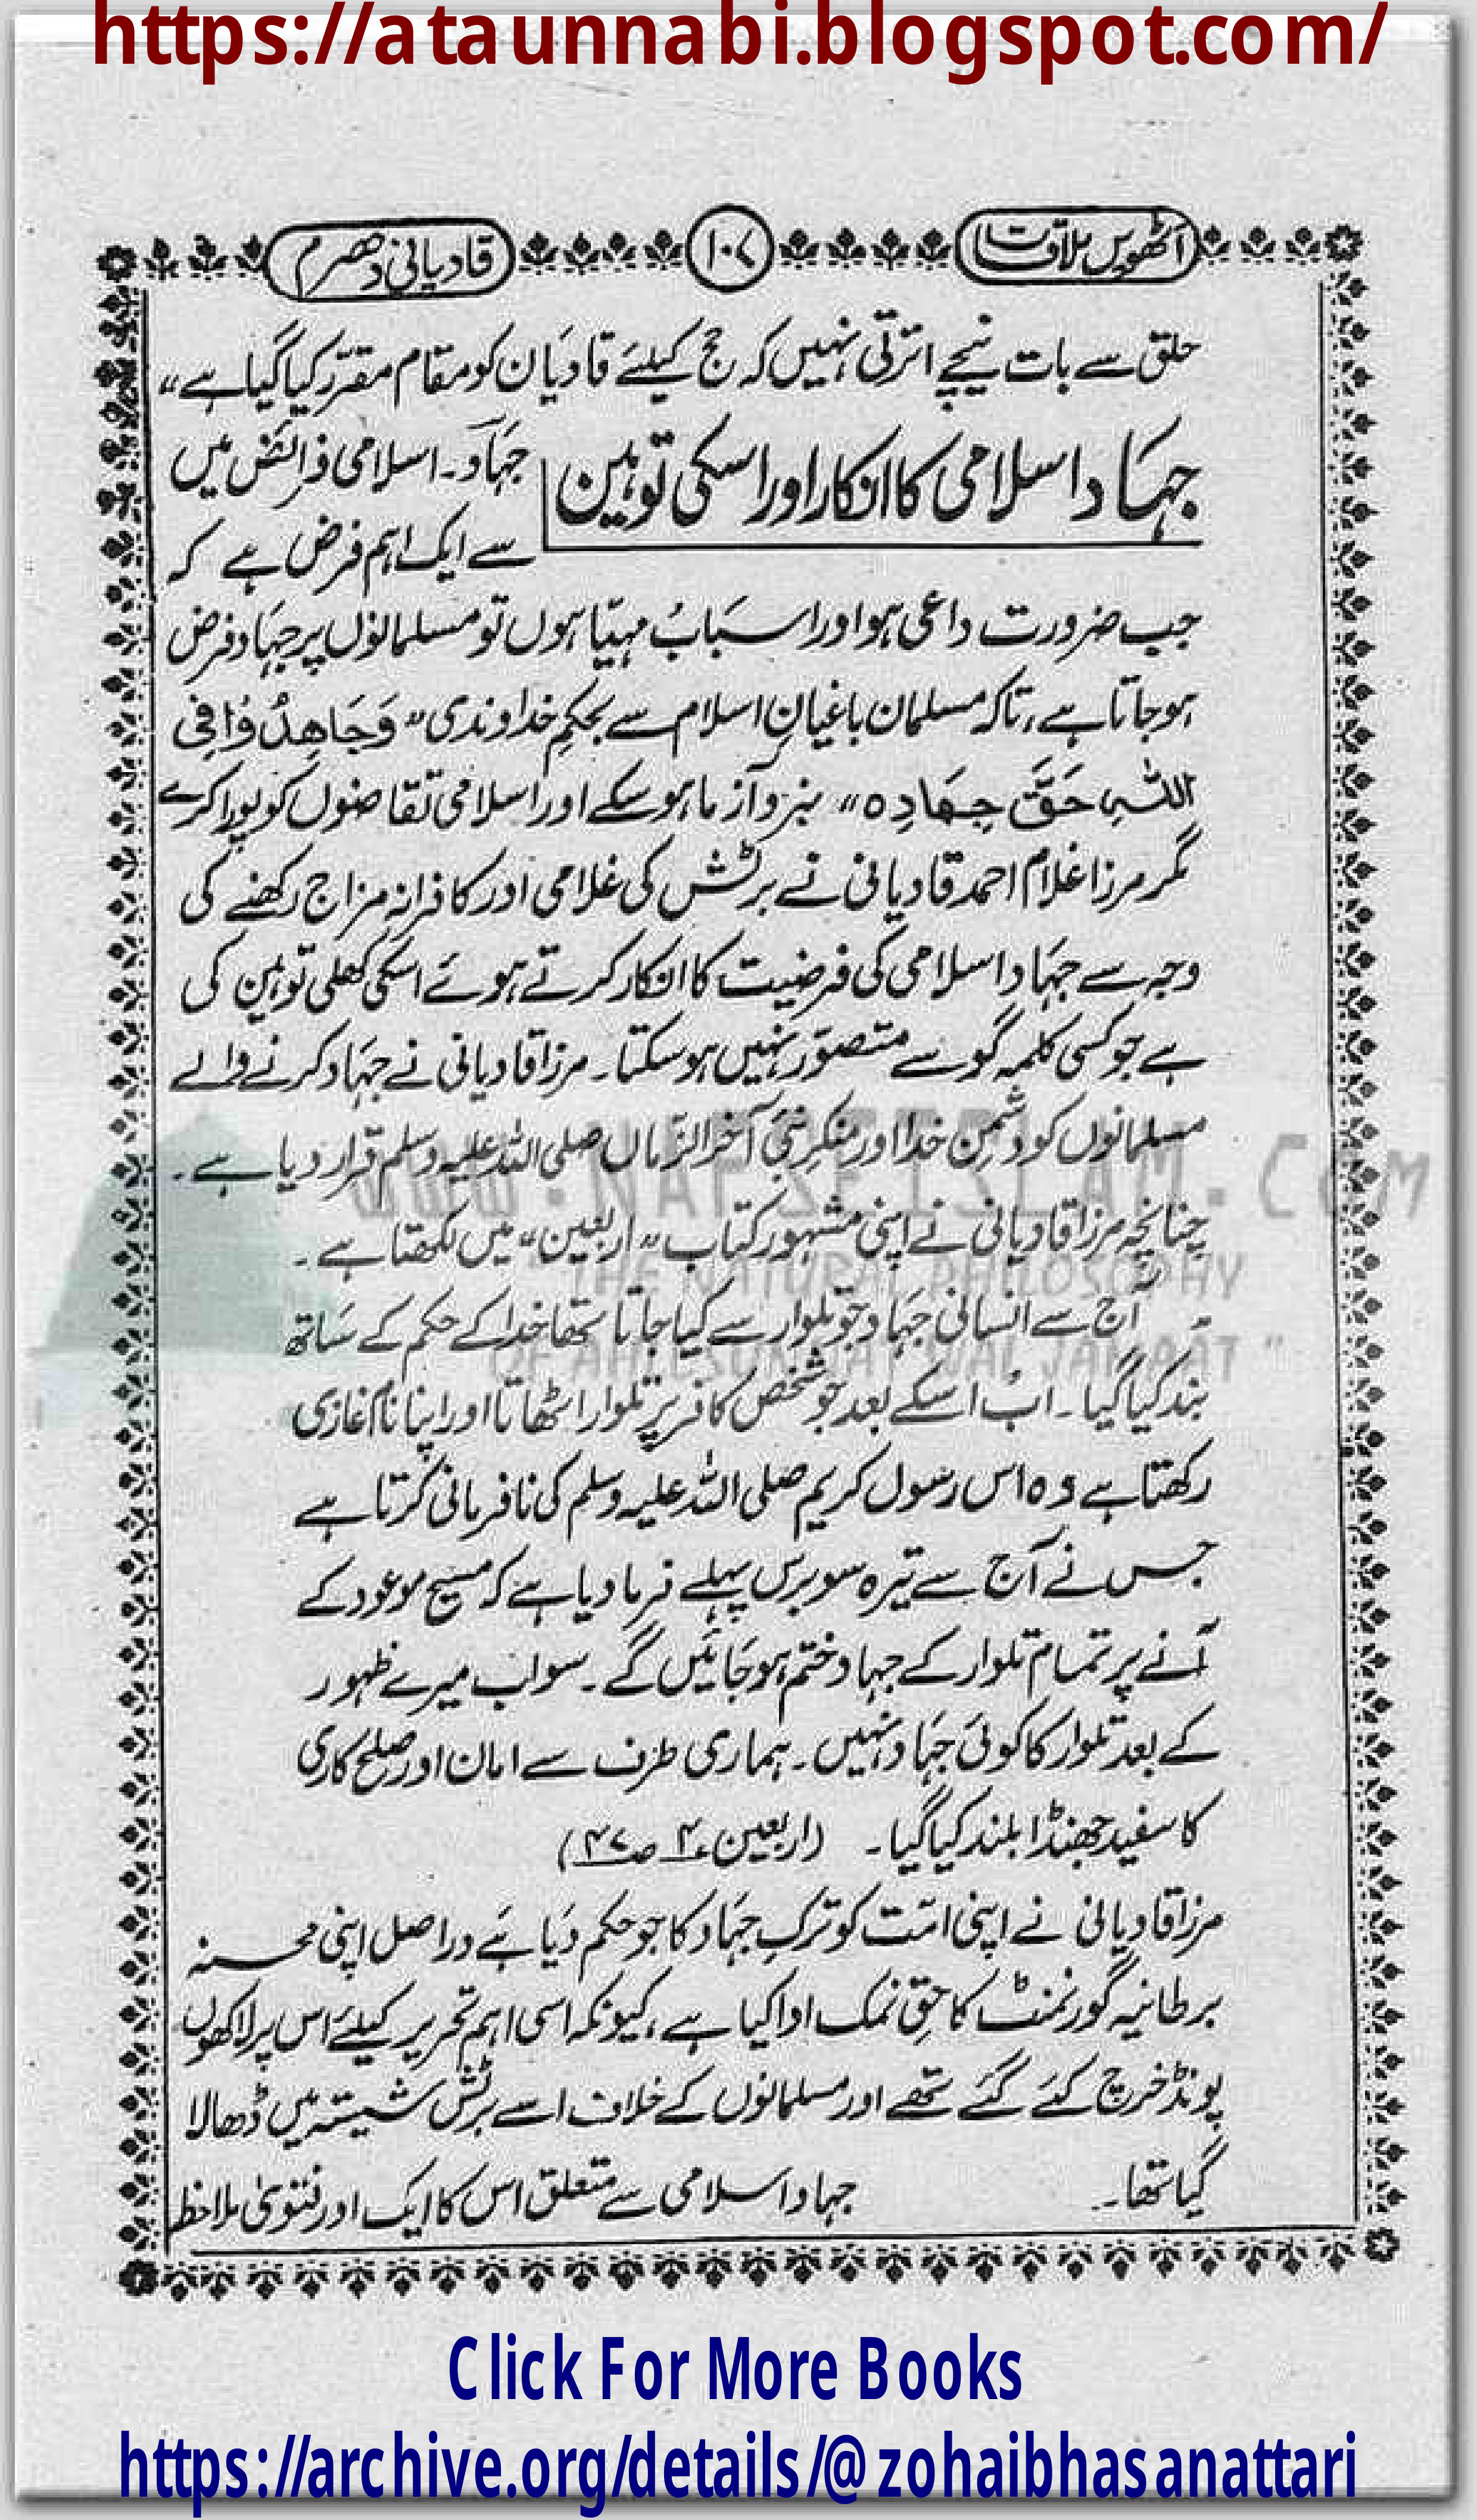 https://ataunnabi.blogspot.com/
آٹھویں ملاقات
۱۰۷
قادیانی دھرم
حلق سے بات نیچے اترتی نہیں کہ حج کیلئے قادیان کو مقام مقرّر کیا گیا ہے"
جہاد اسلامی کا انکار اور اسکی توہین
جہاد۔ اسلامی فرائض میں
سے ایک اہم فرض ہے کہ
جب ضرورت داعی ہو اور اسباب مہیّا ہوں تو مسلمانوں پر جہاد فرض
ہو جاتا ہے، تاکہ مسلمان باغیانِ اسلام سے بحکمِ خداوندی "وَجَاهِدُوْا فِی
اللہِ حَقَّ جِهَادِہ" نبرد آزما ہو سکے اور اسلامی تقاضوں کو پورا کرے
مگر مرزا غلام احمد قادیانی نے برٹش کی غلامی اور کافرانہ مزاج رکھنے کی
وجہ سے جہاد اسلامی کی فرضیت کا انکار کرتے ہوئے اسکی کھلی توہین کی
ہے جو کسی کلمہ گو سے متصوّر نہیں ہو سکتا۔ مرزا قادیانی نے جہاد کرنے والے
مسلمانوں کو دشمنِ خدا اور منکرِ نبیٔ آخر الزّماں صلی اللہ علیہ وسلم قرار دیا ہے۔
چنانچہ مرزا قادیانی نے اپنی مشہور کتاب "اربعین" میں لکھتا ہے۔
آج سے انسانی جہاد جو تلوار سے کیا جاتا تھا خدا کے حکم کے ساتھ
بند کیا گیا۔ اب اسکے بعد جو شخص کافر پر تلوار اٹھاتا اور اپنا نام غازی
رکھتا ہے وہ اس رسول کریم صلی اللہ علیہ وسلم کی نافرمانی کرتا ہے
جس نے آج سے تیرہ سو برس پہلے فرما دیا ہے کہ مسیح موعود کے
آنے پر تمام تلوار کے جہاد ختم ہو جائیں گے۔ سو اب میرے ظہور
کے بعد تلوار کا کوئی جہاد نہیں۔ ہماری طرف سے امان اور صلح کاری
کا سفید جھنڈا بلند کیا گیا۔ (اربعین ۴ ص۴۷)
مرزا قادیانی نے اپنی امّت کو ترکِ جہاد کا جو حکم دیا ہے دراصل اپنی محسنہ
برطانیہ گورنمنٹ کا حقِ نمک ادا کیا ہے، کیونکہ اسی اہم تحریر کیلئے اس پر لاکھوں
پونڈ خرچ کئے گئے تھے اور مسلمانوں کے خلاف اسے برٹش شیشہ میں ڈھالا
گیا تھا۔ جہاد اسلامی سے متعلق اس کا ایک اور فتویٰ ملاحظ
WWW.NAFSEISLAM.COM
"THE NATURAL PHILOSOPHY
OF AHLESUNNAT WAL JAMAAT"
Click For More Books
https://archive.org/details/@zohaibhasanattari